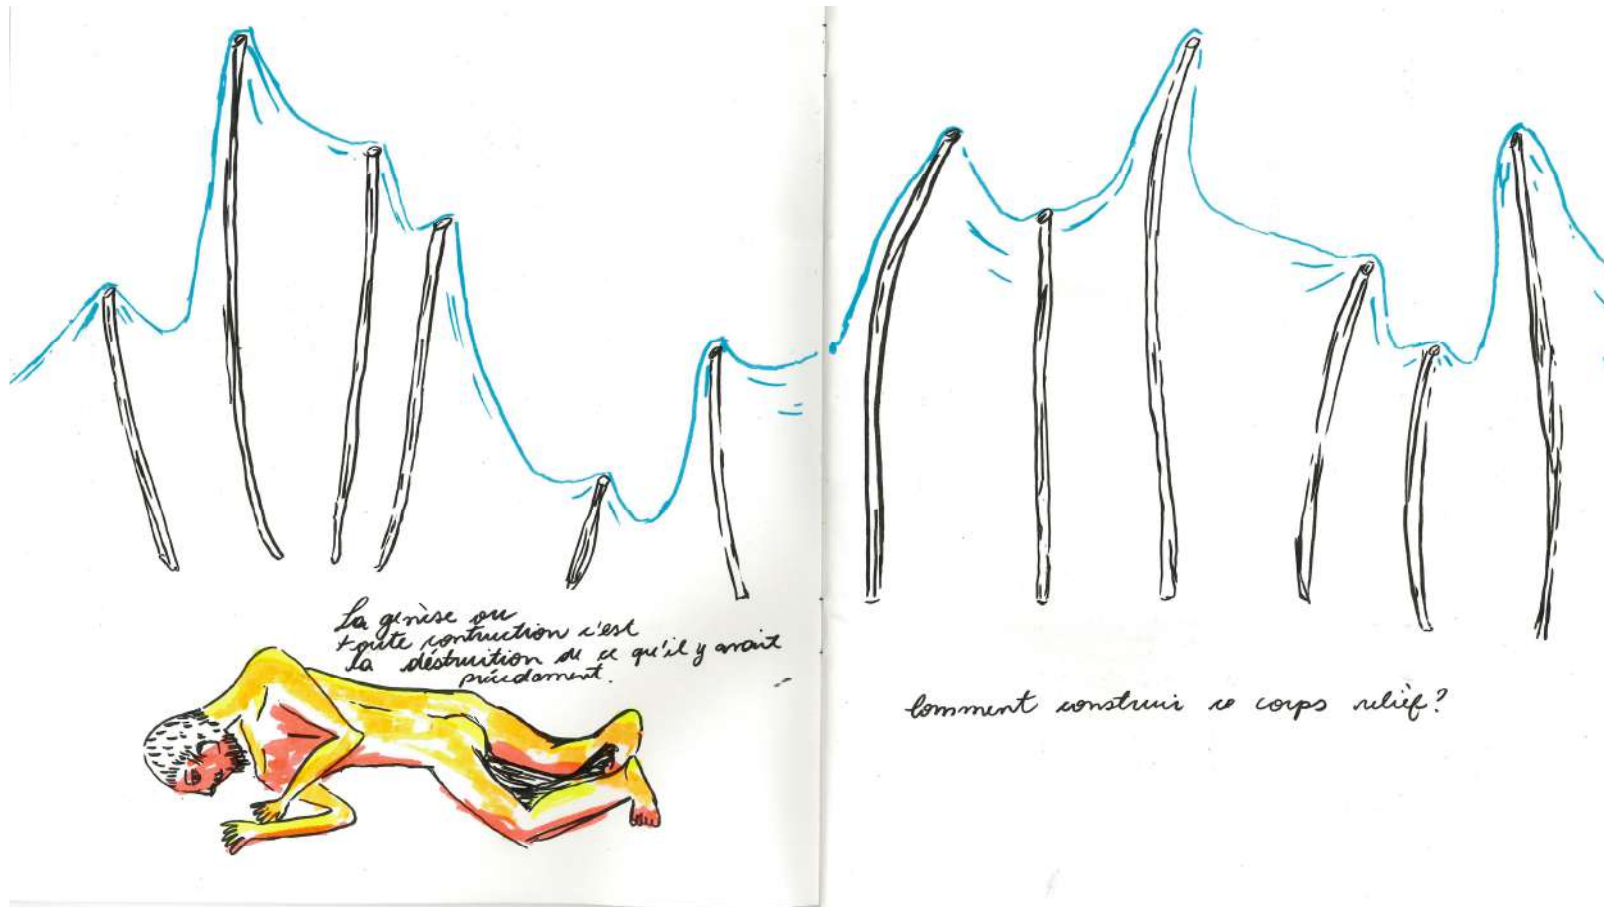 La génèse ou
toute contruction c'est
la déstruition de ce qu'il y avait
précedament.
Comment construir ce corps relièf?